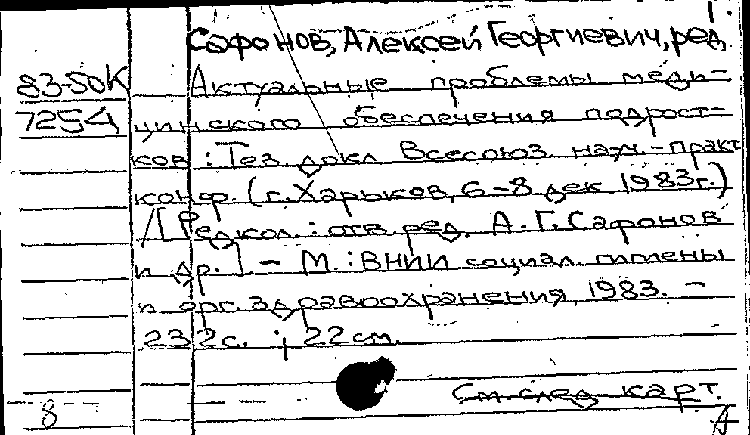 Сафонов, Алексей Георгиевич, ред.
83-50К Актуальные проблемы меди-
7254 цинского обеспечения подрост-
ков : Тез. докл Всесоюз. науч.-практ
конф. (г. Харьков, 6-8 дек 1983г.)
/[Редкол. : отв. ред. А. Г. Сафонов
и др.]. - М. : ВНИИ социал. гигиены
и орг. здравоохранения, 1983. -
232с. ; 22 см.
См. след. карт.
8